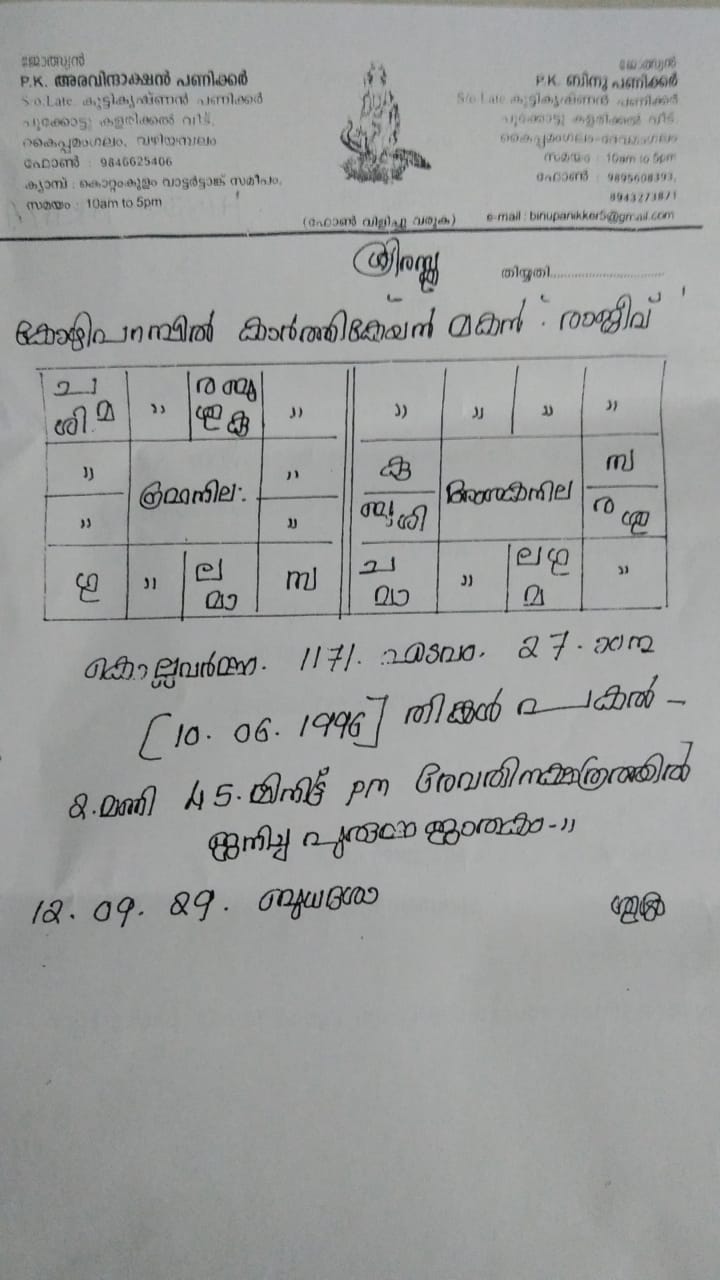 ജ്യോത്സ്യൻ
P.K. അരവിന്ദാക്ഷൻ പണിക്കർ
S/o.Late. കുട്ടികൃഷ്ണൻ പണിക്കർ
കളരിക്കൽ വീട്,
കൈപ്പമംഗലം,
ഫോൺ : 9846625406
ക്യാമ്പ് : കൊറ്റംകുളം വാട്ടർടാങ്ക് സമീപം,
സമയം : 10am to 5pm
ജ്യോത്സ്യൻ
P.K. ബിനു പണിക്കർ
S/o Late കുട്ടികൃഷ്ണൻ പണിക്കർ
കളരിക്കൽ വീട്,
സമയം : 10am to 5pm
ഫോൺ : 9895608393,
8943273871
(ഫോൺ വിളിച്ചു വരുക) e-mail : binupanikker5@gmail.com
ശ്രീരസ്തു
തിയ്യതി..............................
കോഴിപറമ്പിൽ കാർത്തികേയൻ മകൻ : രാജീവ്
ച ” ” ” ” ” ”
ശി.മ
” ഗ്രഹനില: ” ” ” ”
ഗു ” ല സ ” ”
മാ
കൊല്ലവർഷം. 1171. ഇടവം. 27.
[10. 06. 1996] തിങ്കൾ പകൽ –
2. മണി 45. മിനിട്ട് pm രേവതിനക്ഷത്രത്തിൽ
ജനിച്ച പുരുഷ ജാതകം - ”
12. 09. 29. ബുധദശ